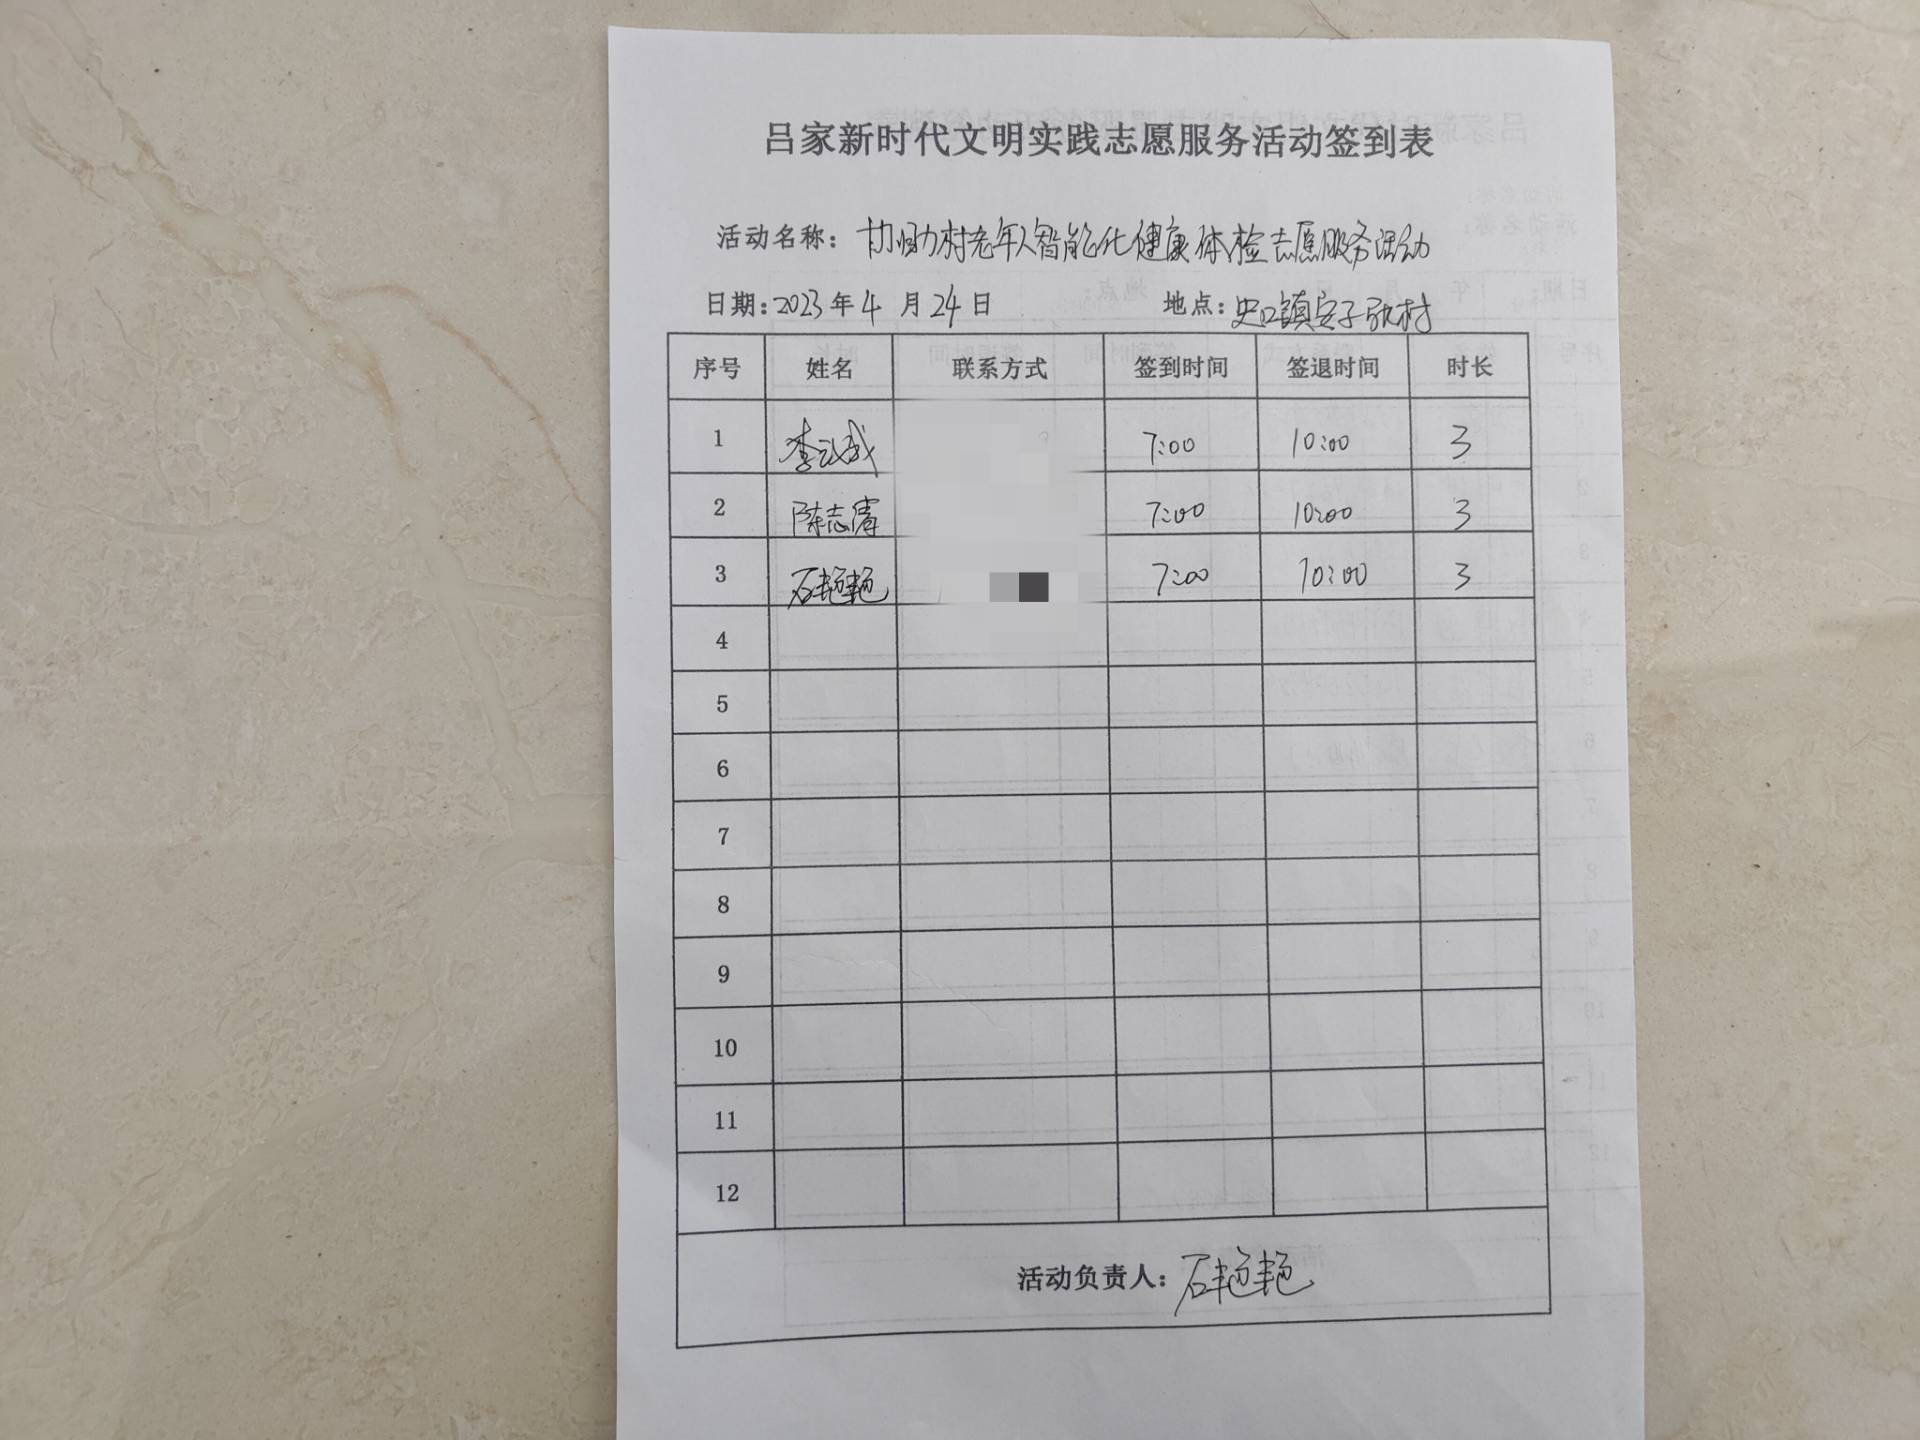 吕家新时代文明实践志愿服务活动签到表
活动名称：协助村老年人智能化健康体检志愿服务活动
日期：2023年4月24日 地点：史口镇安子张村
序号 姓名 联系方式 签到时间 签退时间 时长
1 李 成 7:00 10:00 3
2 陈志 7:00 10:00 3
3 石艳艳 7:00 10:00 3
4
5
6
7
8
9
10
11
12
活动负责人：石艳艳